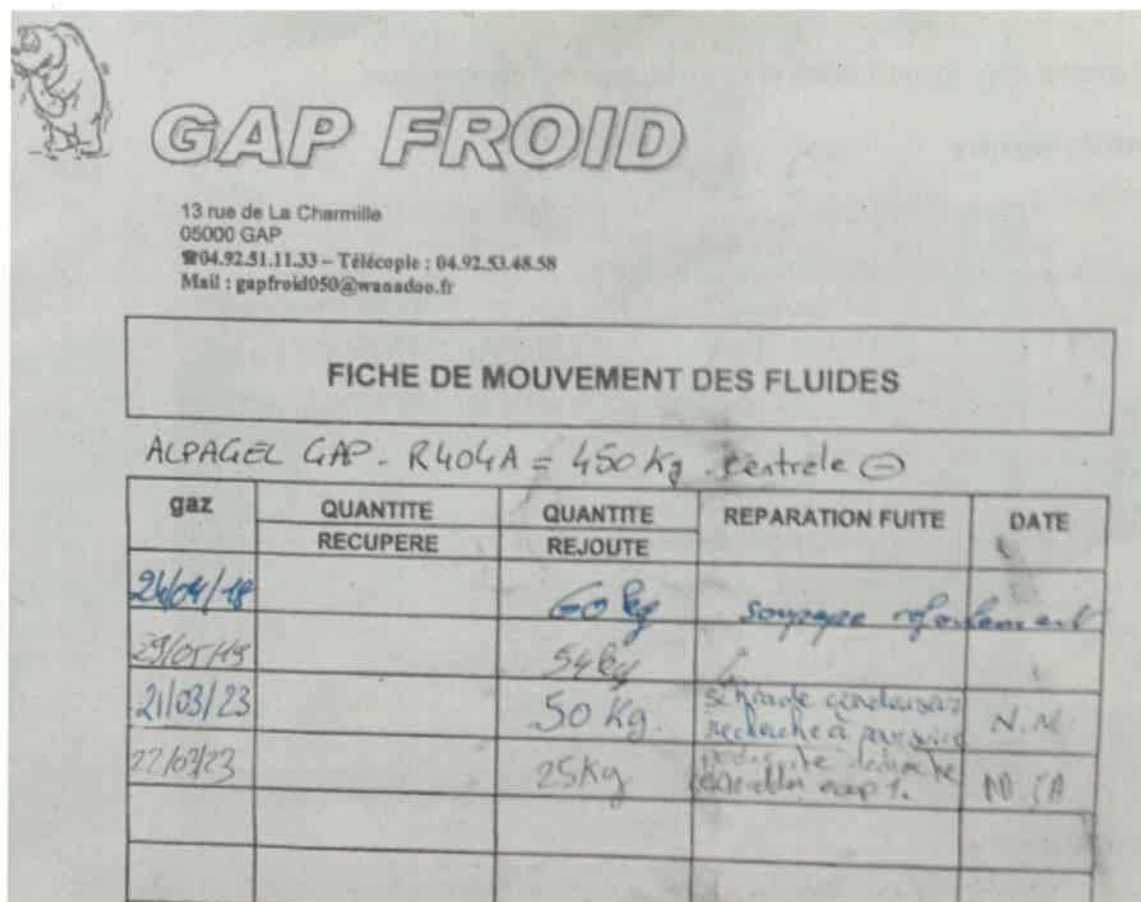 GAP FROID
13 rue de La Charmille
05000 GAP
☎04.92.51.11.33 – Télécopie : 04.92.53.48.58
Mail : gapfroid050@wanadoo.fr
FICHE DE MOUVEMENT DES FLUIDES
ALPAGEL GAP - R404A = 450 Kg centrale ⊖
gaz QUANTITE RECUPERE QUANTITE REJOUTE REPARATION FUITE DATE
24/04/18 60 kg soupape refoulement
29/05/19 54kg
21/03/23 50 Kg. condenseur N.M
recherche à poursuivre
22/03/23 25Kg